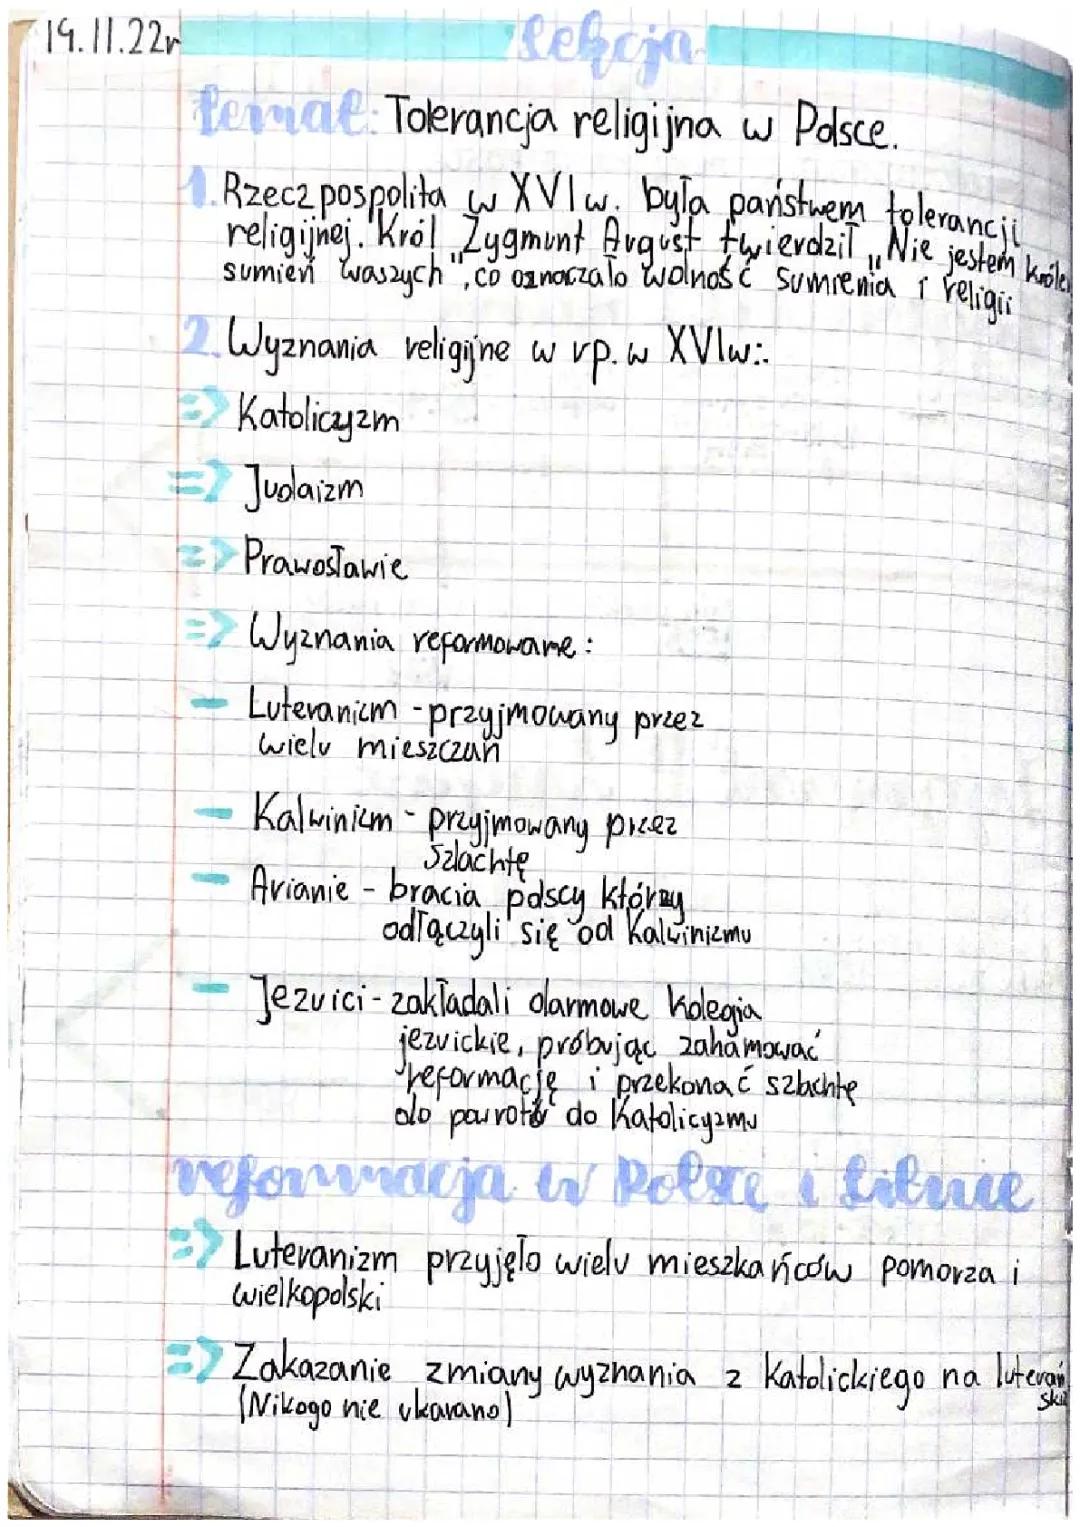 19.11.22r Lekcja
Temat: Tolerancja religijna w Polsce.
1. Rzecz pospolita w XVI w. była państwem tolerancji
religijnej. Król Zygmunt August twierdził „Nie jestem królem
sumień waszych", co oznaczało wolność sumienia i religii
2. Wyznania religijne w rp. w XVIw:.
=> Katolicyzm
=> Judaizm
=> Prawosławie
=> Wyznania reformowane:
- Luteranizm - przyjmowany przez
wielu mieszczan
- Kalwinizm - przyjmowany przez
szlachtę
- Arianie - bracia polscy którzy
odłączyli się od kalwinizmu
- Jezuici - zakładali darmowe kolegia
jezuickie, próbując zahamować
reformację i przekonać szlachtę
do powrotu do katolicyzmu
reformacja w Polsce i Litwie
=> Luteranizm przyjęło wielu mieszkańców pomorza i
wielkopolski
=> Zakazanie zmiany wyznania z katolickiego na luterań
skie
(Nikogo nie ukarano)